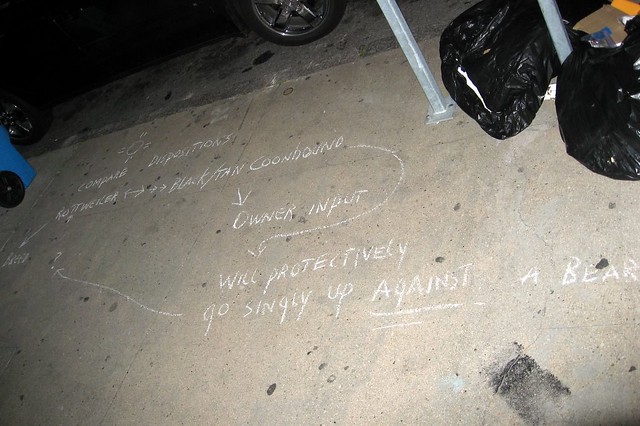 "O"
COMPARE DISPOSITIONS:
ROTTWEILER <--> --> BLACK/TAN COONHOUND
OWNER-INPUT
?
WILL PROTECTIVELY
go SINGLY UP AGAINST A BEAR